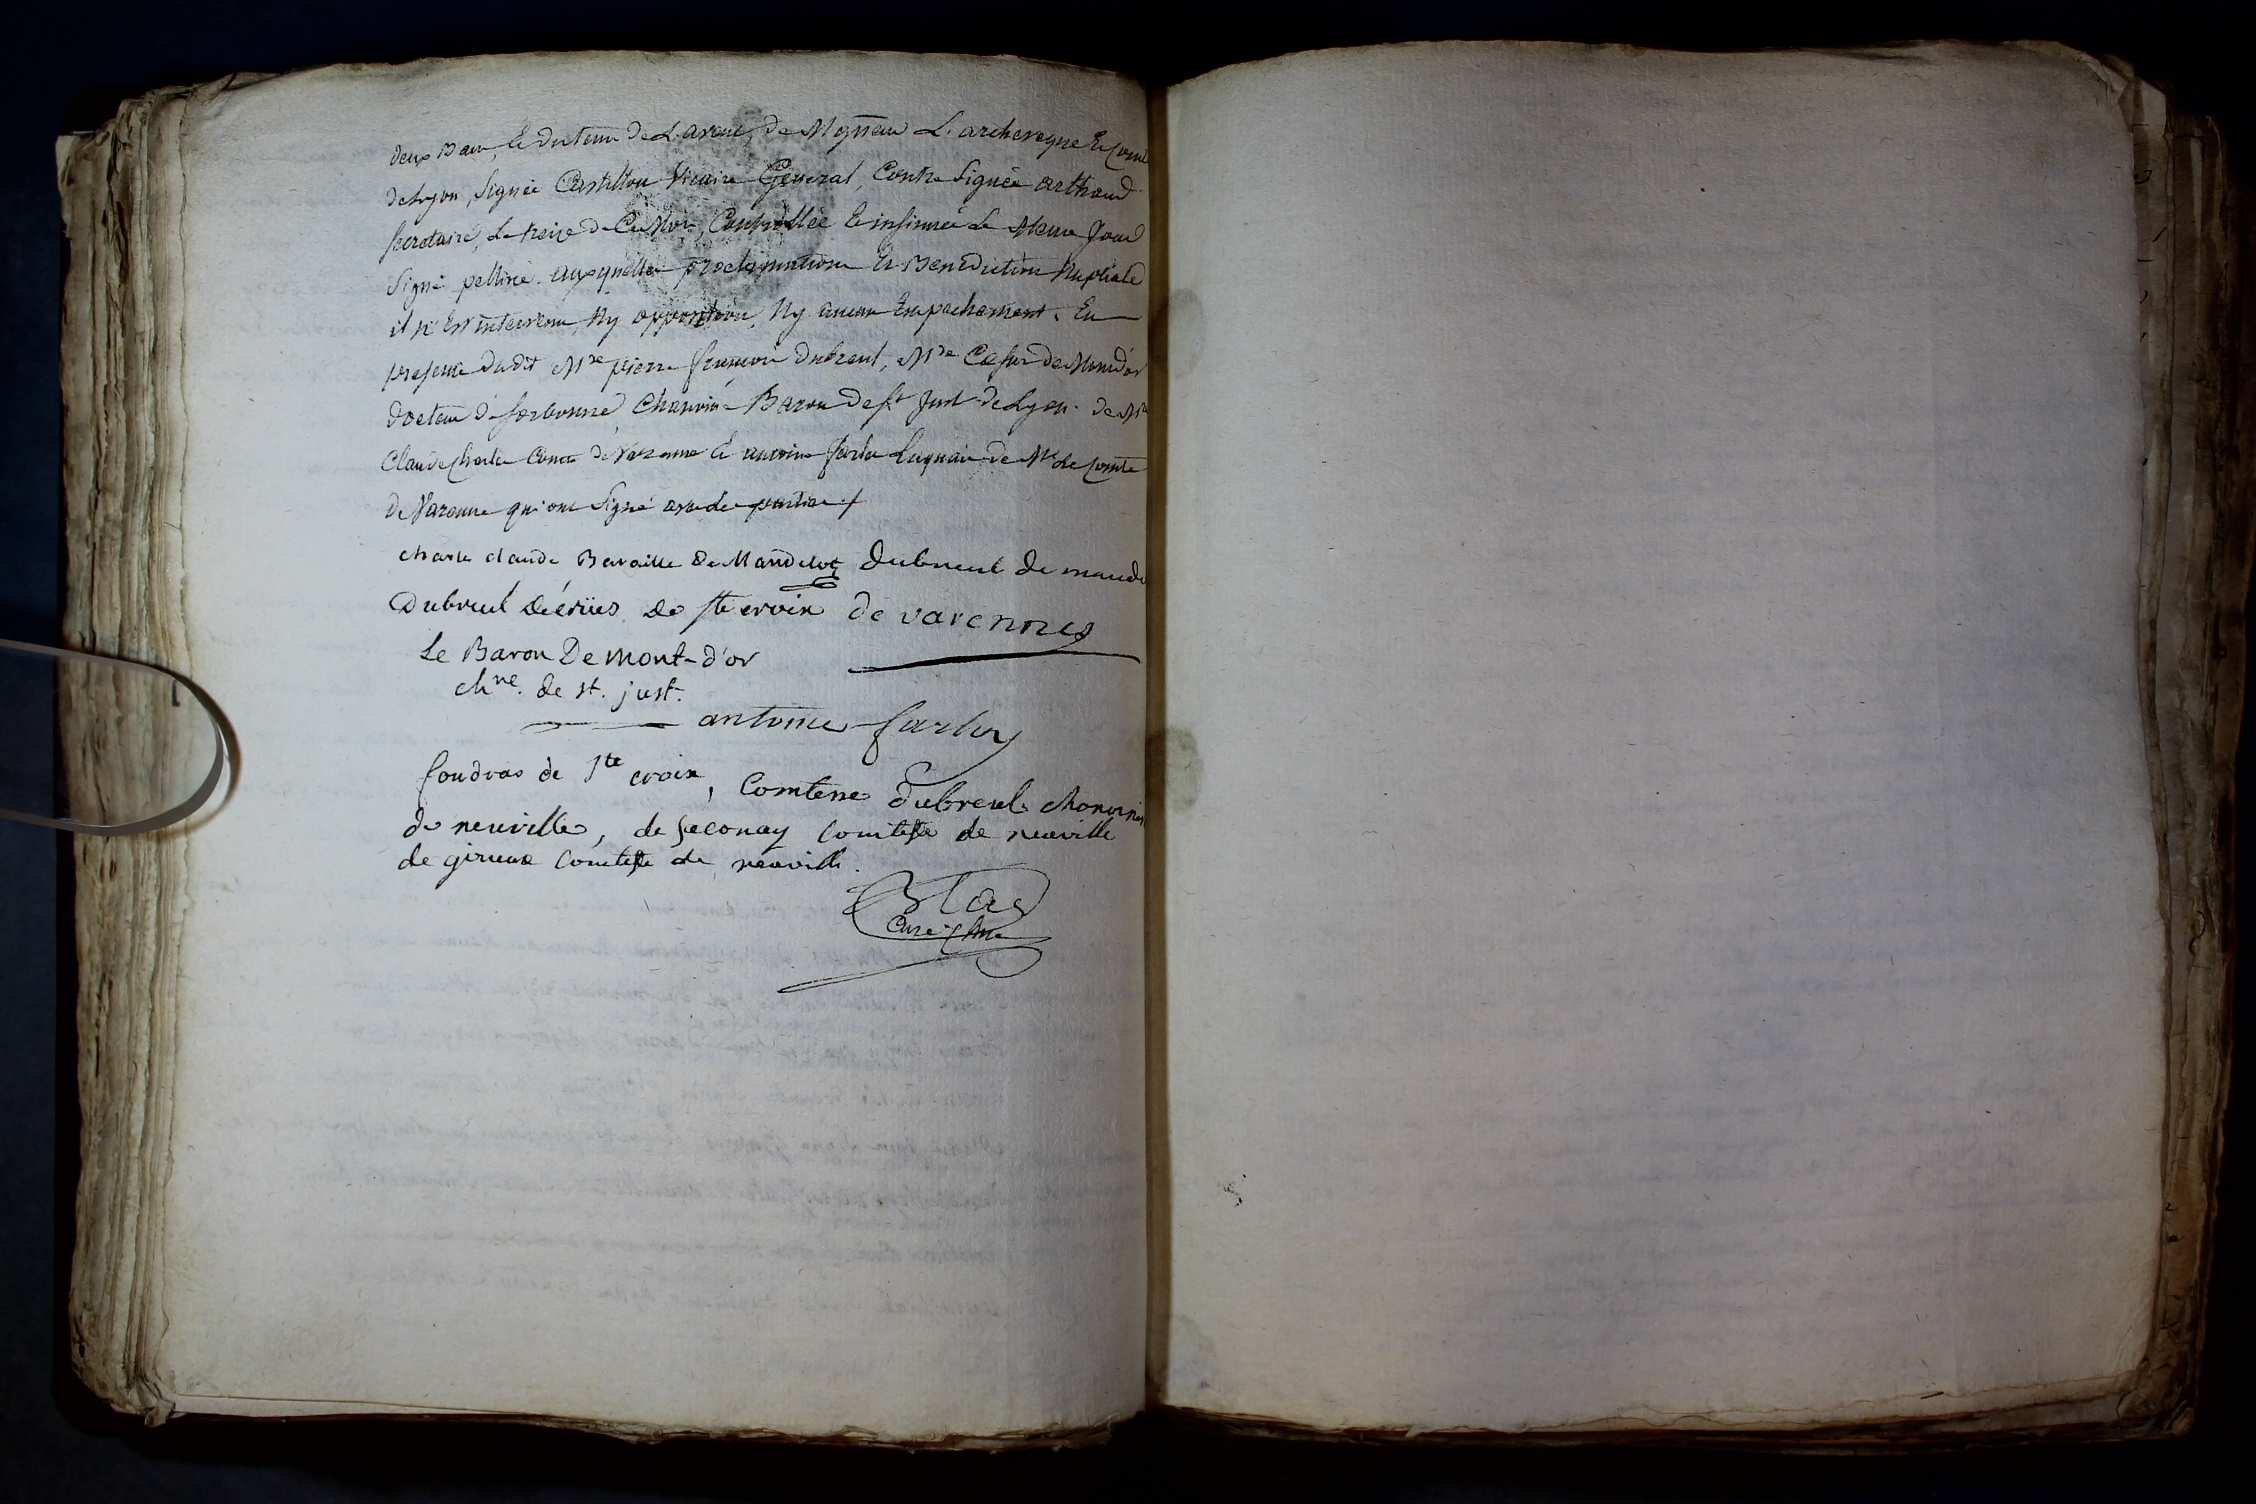 deux Bans, & du tems de L'avent, de Mgneur L'archeveque & Comte
de Lyon, Signée Castillon Vicaire General, Contre Signée arthaud
secretaire, Le treize de Ce Mois, Controllée & insinuée Le Meme Jour
Signé auxquelles proclamations & Benediction Nuptiale
il n'Est intervenu, Ny opposition, Ny aucun Empechement. En
presence dudit Mre pierre françois Dubreul, Mre Cesar de Mondor
docteur de sorbonne, Chanoine Baron de St Just de Lyon. de Mre
Claude Charle Comte de Varenne & antoine farlay Laquais de Mr Le Comte
de Varenne qui ont Signé avec les parties ./.
charle claude Bataille De Mandelot Dubreul de
Dubreul de ste croix de varennes
Le Baron De mont-d'or
chne. de st. just.
antoine farlay
foudras de Ste croix, Comtesse Dubreul chanoinesse
de neuville, de seconay Comtesse de neuville
de girieux Comtesse de neuville.
Blas
Curé